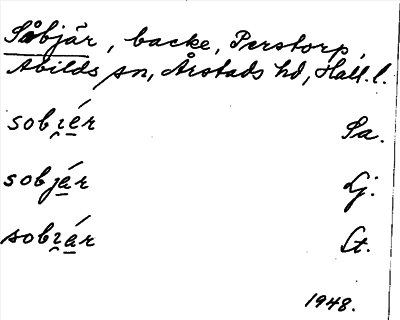 Såbjär, backe, Perstorp,
Abilds sn, Årstads hd, Hall. l.
sobı̯é̠r Sa.
sobjá̠r Lj.
sobı̯á̠r Lt.
1948.